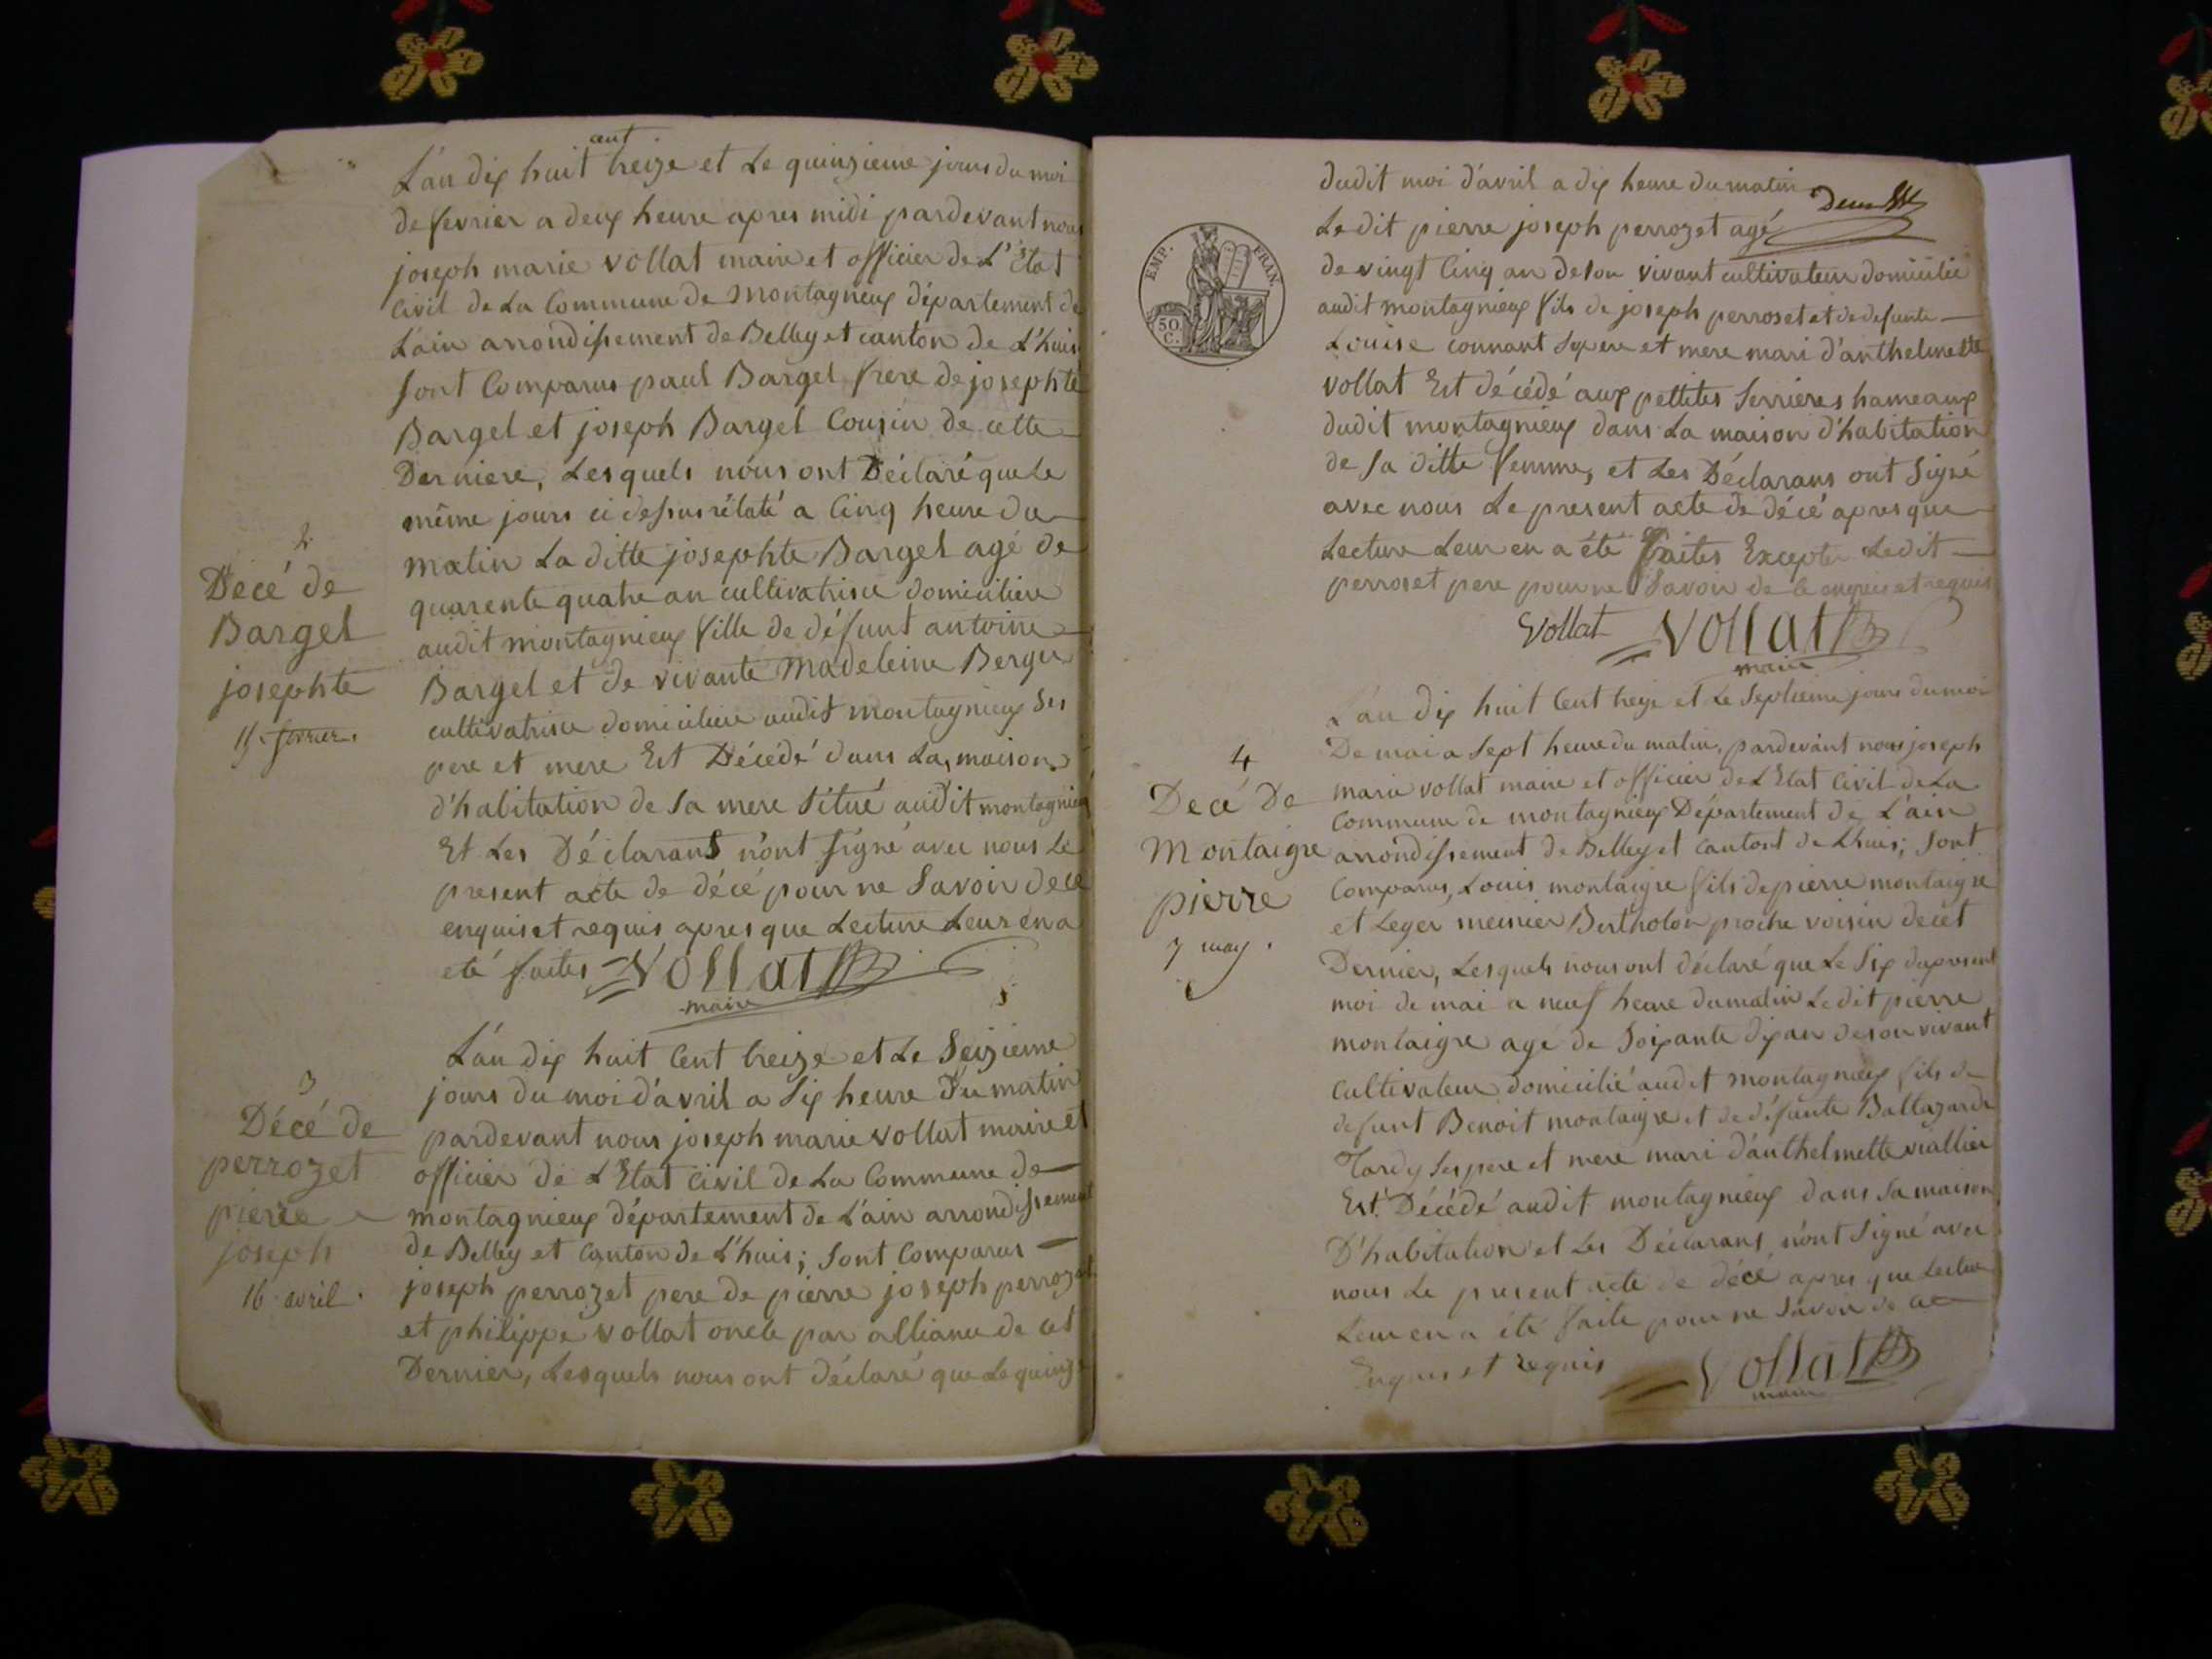 cent
L'an dix huit treize et Le quinzieme jours du moi
de fevrier a deux heure apres midi pardevant nous
joseph marie vollat maire et officier de L'Etat
Civil de La Commune de Montagnieux département de
L'ain arrondissement de Belley et canton de L'huis
Sont Comparus paul Bargel frere de josephte
Bargel et joseph Bargel Cousin de cette
Derniere, Lesquels nous ont Déclaré que Le
même jours ci dessus rélaté a Cinq heure du
matin La ditte josephte Bargel agé de
quarente quatre an cultivatrise domiciliere
audit montagnieux fille de défunt antoine
Bargel et de vivante Madeleine
cultivatrise domiciliere audit montagnieux Ses
pere et mere Est Décédé dans La maison
d'habitation de Sa mere Situé audit montagnieux
Et Les Déclarans n'ont Signé avec nous Le
present acte de décé pour ne Savoir de ce
enquis et requis apres que Lecture Leur en a
eté faites Vollat
maire
2
Décé de
Bargel
josephte
15 fevrier.
L'an dix huit Cent treize et Le Seizieme
jours du moi d'avril a Six heure Du matin
pardevant nous joseph marie vollat maire et
officier de L'Etat Civil de La Commune de
montagnieux département de L'ain arrondissement
de Belley et Canton de L'huis; Sont Comparus
joseph perrozet pere de pierre joseph perrozet
et philippe vollat oncle par alliance de cet
Dernier, Lesquels nous ont déclaré que Le quinze
3
Décé de
perrozet
pierre
joseph
16 avril.
EMP. FRAN.
50
C.
dudit moi d'avril a dix heure du matin
Le dit pierre joseph perrozet agé
de vingt Cinq an de Son vivant cultivateur domicilié
audit montagnieux fils de joseph perroset et de defunte
Louise Ses pere et mere mari d'anthelmette
vollat Est décédé aux pettites Serrieres hameaux
dudit montagnieux dans La maison d'habitation
de Sa ditte femme, et Les Déclarans ont Signé
avec nous Le present acte de décé apres que
Lecture Leur en a été faites Excepté Ledit
perroset pere pour ne Savoir de ce enquis et requis
Vollat Vollat
maire
L'an dix huit Cent treize et Le Septieme jours du moi
De mai a Sept heure du matin, pardevant nous joseph
marie vollat maire et officier de L'Etat Civil de La
Commune de montagnieux Département de L'ain
arrondissement de Belley et Canton de Lhuis; Sont
Comparus, Louis montaigre fils de pierre montaigre
et Leger meinier Bertholon proche voisin de cet
Dernier, Lesquels nous ont déclaré que Le Six du present
moi de mai a neuf heure du matin Le dit pierre
montaigre agé de Soixante dix an de son vivant
Cultivateur domicilié audit montagnieux fils de
defunt Benoit montaigre et de défunte Baltazarde
Tardy Ses pere et mere mari d'anthelmette viallier
Est Décédé audit montagnieux dans Sa maison
D'habitation et Les Déclarans n'ont Signé avec
nous Le present acte de décé apres que Lecture
Leur en a été faite pour ne Savoir de ce
Enquis et requis Vollat
maire
4
Decé De
Montaigre
pierre
7 may.